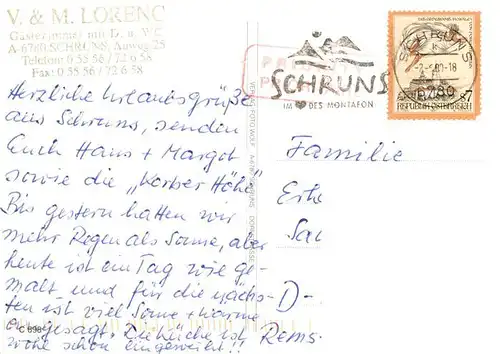 V. & M. LORENC
Gästezimmer mit D. u. WC
A-6780 SCHRUNS, Auweg 25
Telefon: 0 55 58 / 72 6 58
Fax: 0 55 56 / 72 6 58
Herzliche Urlaubsgrüße
aus Schruns, senden
Euch Hans + Margot
sowie die "Korber Höhe"
Bis gestern hatten wir
mehr Regen als Sonne, aber
heute ist ein Tag wie ge-
malt und für die nächs-
ten ist viel Sonne + Wärme
angesagt. Die Küche ist
wohl schon eingeweiht!!
C 898
SCHRUNS
IM ♥ DES MONTAFON
SCHRUNS
6780
S7
REPUBLIK ÖSTERREICH
Familie
D-
Rems